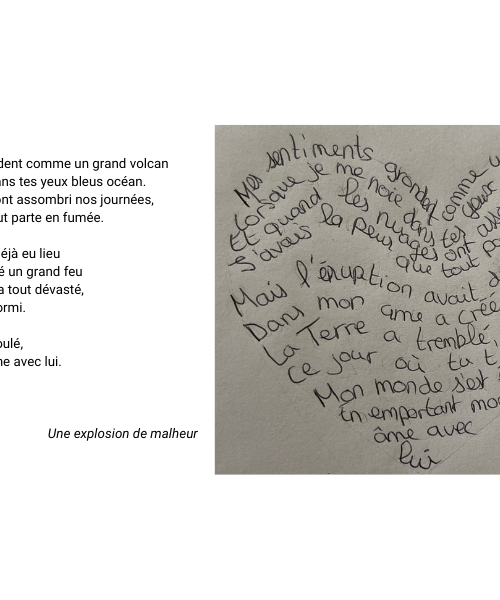 dent comme un grand volcan
ns tes yeux bleus océan.
ont assombri nos journées,
ut parte en fumée.
éjà eu lieu
é un grand feu
a tout dévasté,
ormi.
oulé,
ne avec lui.
Une explosion de malheur
Mes sentiments grondent comme u
Lorsque je me noie dans tes yeux
Et quand les nuages ont ass
J'avais la peur que tout p
Mais l'éruption avait d
Dans mon âme a créé
La Terre a tremblé,
Ce jour où tu t
Mon monde s'est
En emportant mo
âme avec
lui